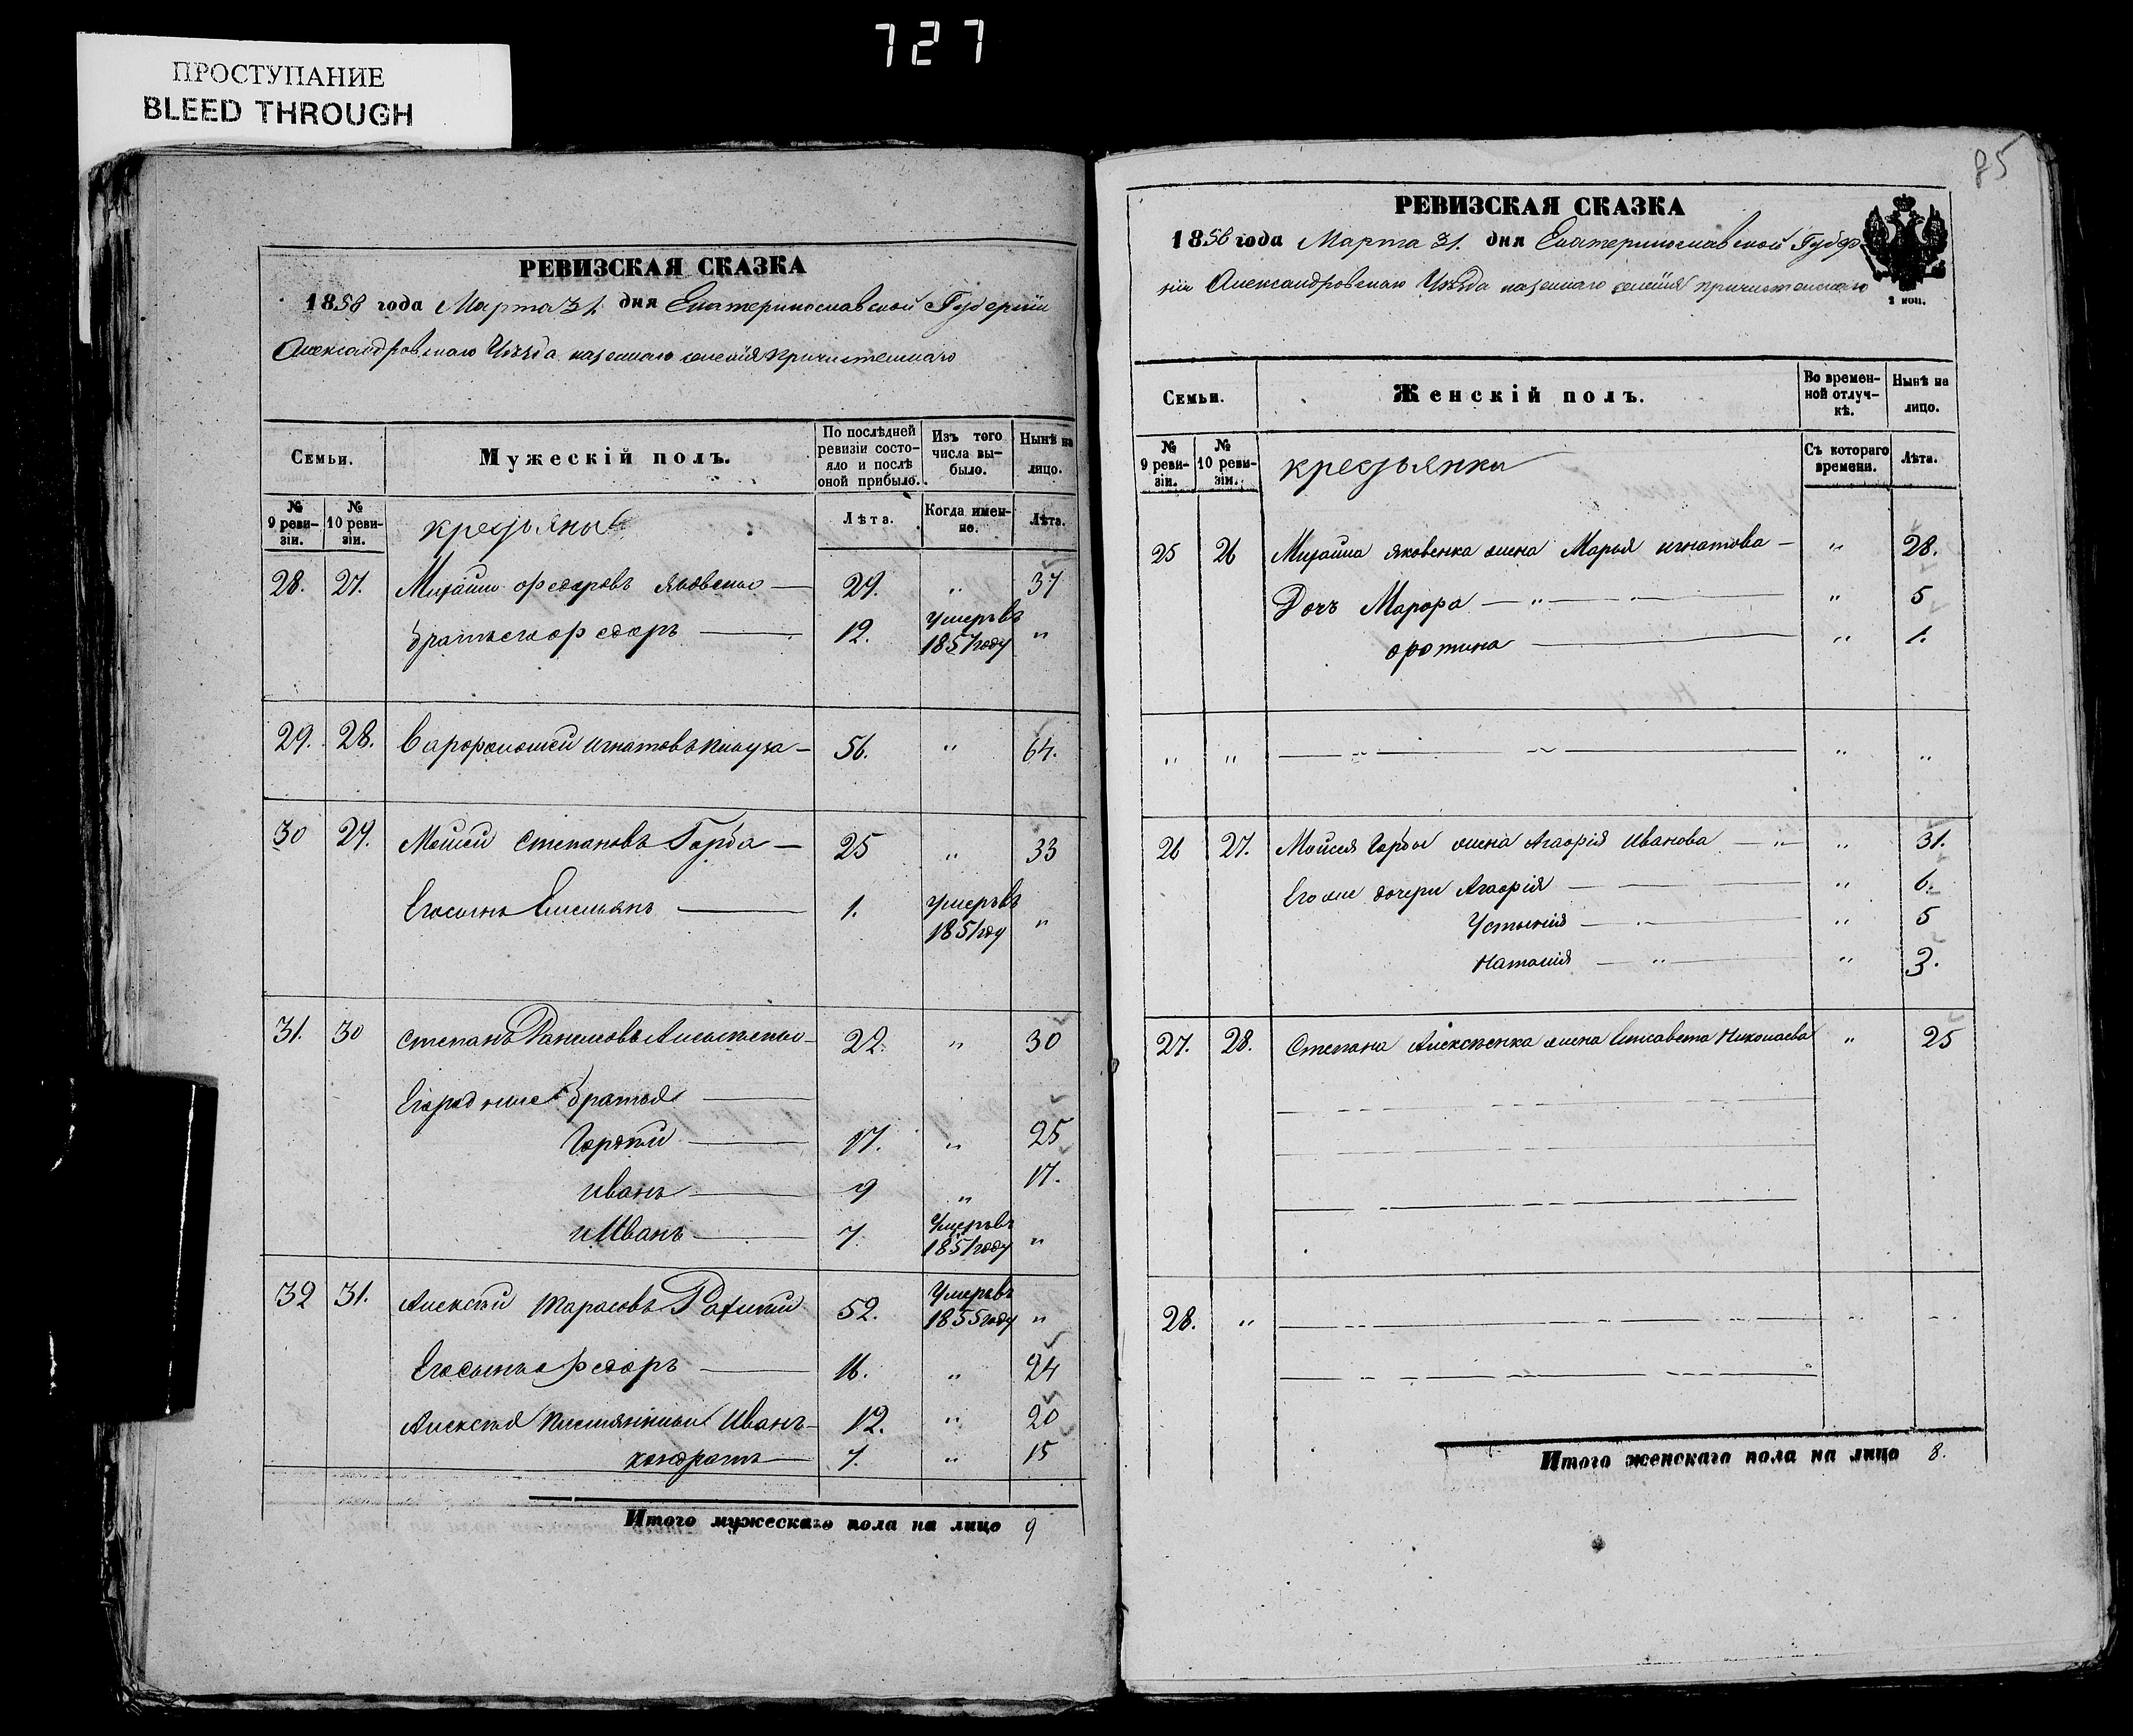 727
ПРОСТУПАНИЕ
BLEED THROUGH
РЕВИЗСКАЯ СКАЗКА
1858 года Марта 31. дня Екатеринославской Губернии
Александровскаго Уезда казеннаго селения Пречистенскаго
Семьи.
Мужескій полъ.
По послѣдней ревизіи состояло и послѣ оной прибыло.
Изъ того числа выбыло.
Нынѣ на лицо.
№ 9 ревизіи.
№ 10 ревизіи.
крестьяны
Лѣта.
Когда именно.
Лѣта.
28. 27. Михайло Федоровъ Яковенко — 29. „ 37
братъ его Федоръ — 12. Умеръ въ 1851 году „
29. 28. Варфоломей Игнатовъ — 56. „ 64.
30 29. Мойсей Степановъ Горба — 25 „ 33
Его сынъ Емельянъ — 1. Умеръ въ 1851 году „
31. 30 Степанъ Алексѣенко — 22. „ 30
Его родные братья —
Гордѣй — 17. „ 25
Иванъ — 9 „ 17.
и Иванъ — 7. Умеръ въ 1851 году „
32 31. Алексѣй Тарасовъ 52. Умеръ въ 1855 году „
Его сынъ Федоръ — 16. „ 24
Алексѣя племянники Иванъ — 12. „ 20
Кондратъ — 7. „ 15
Итого мужескаго пола на лицо 9
85
РЕВИЗСКАЯ СКАЗКА
1858 года Марта 31. дня Екатеринославской Губер
ніи Александровскаго Уезда казеннаго селения Пречистенскаго
2 коп.
Семьи.
Женскій полъ.
Во временной отлучкѣ.
Нынѣ на лицо.
№ 9 ревизіи.
№ 10 ревизіи.
крестьянки
Съ котораго времени.
Лѣта.
25 26 Михайла Яковенка жена Марья Игнатова — „ 28.
Дочь Марфа — „ — „ 5
— „ 1.
„ „ — „ — „ „
26 27. Мойсея Горбы жена Агафія Иванова — „ — „ 31.
Его же дочери Агафія — „ 6.
Устинія — „ 5
Наталія — „ — „ 3.
27. 28. Степана Алексѣенка жена Елисавета Николаева „ 25
28. „ — „ —
Итого женскаго пола на лицо 8.